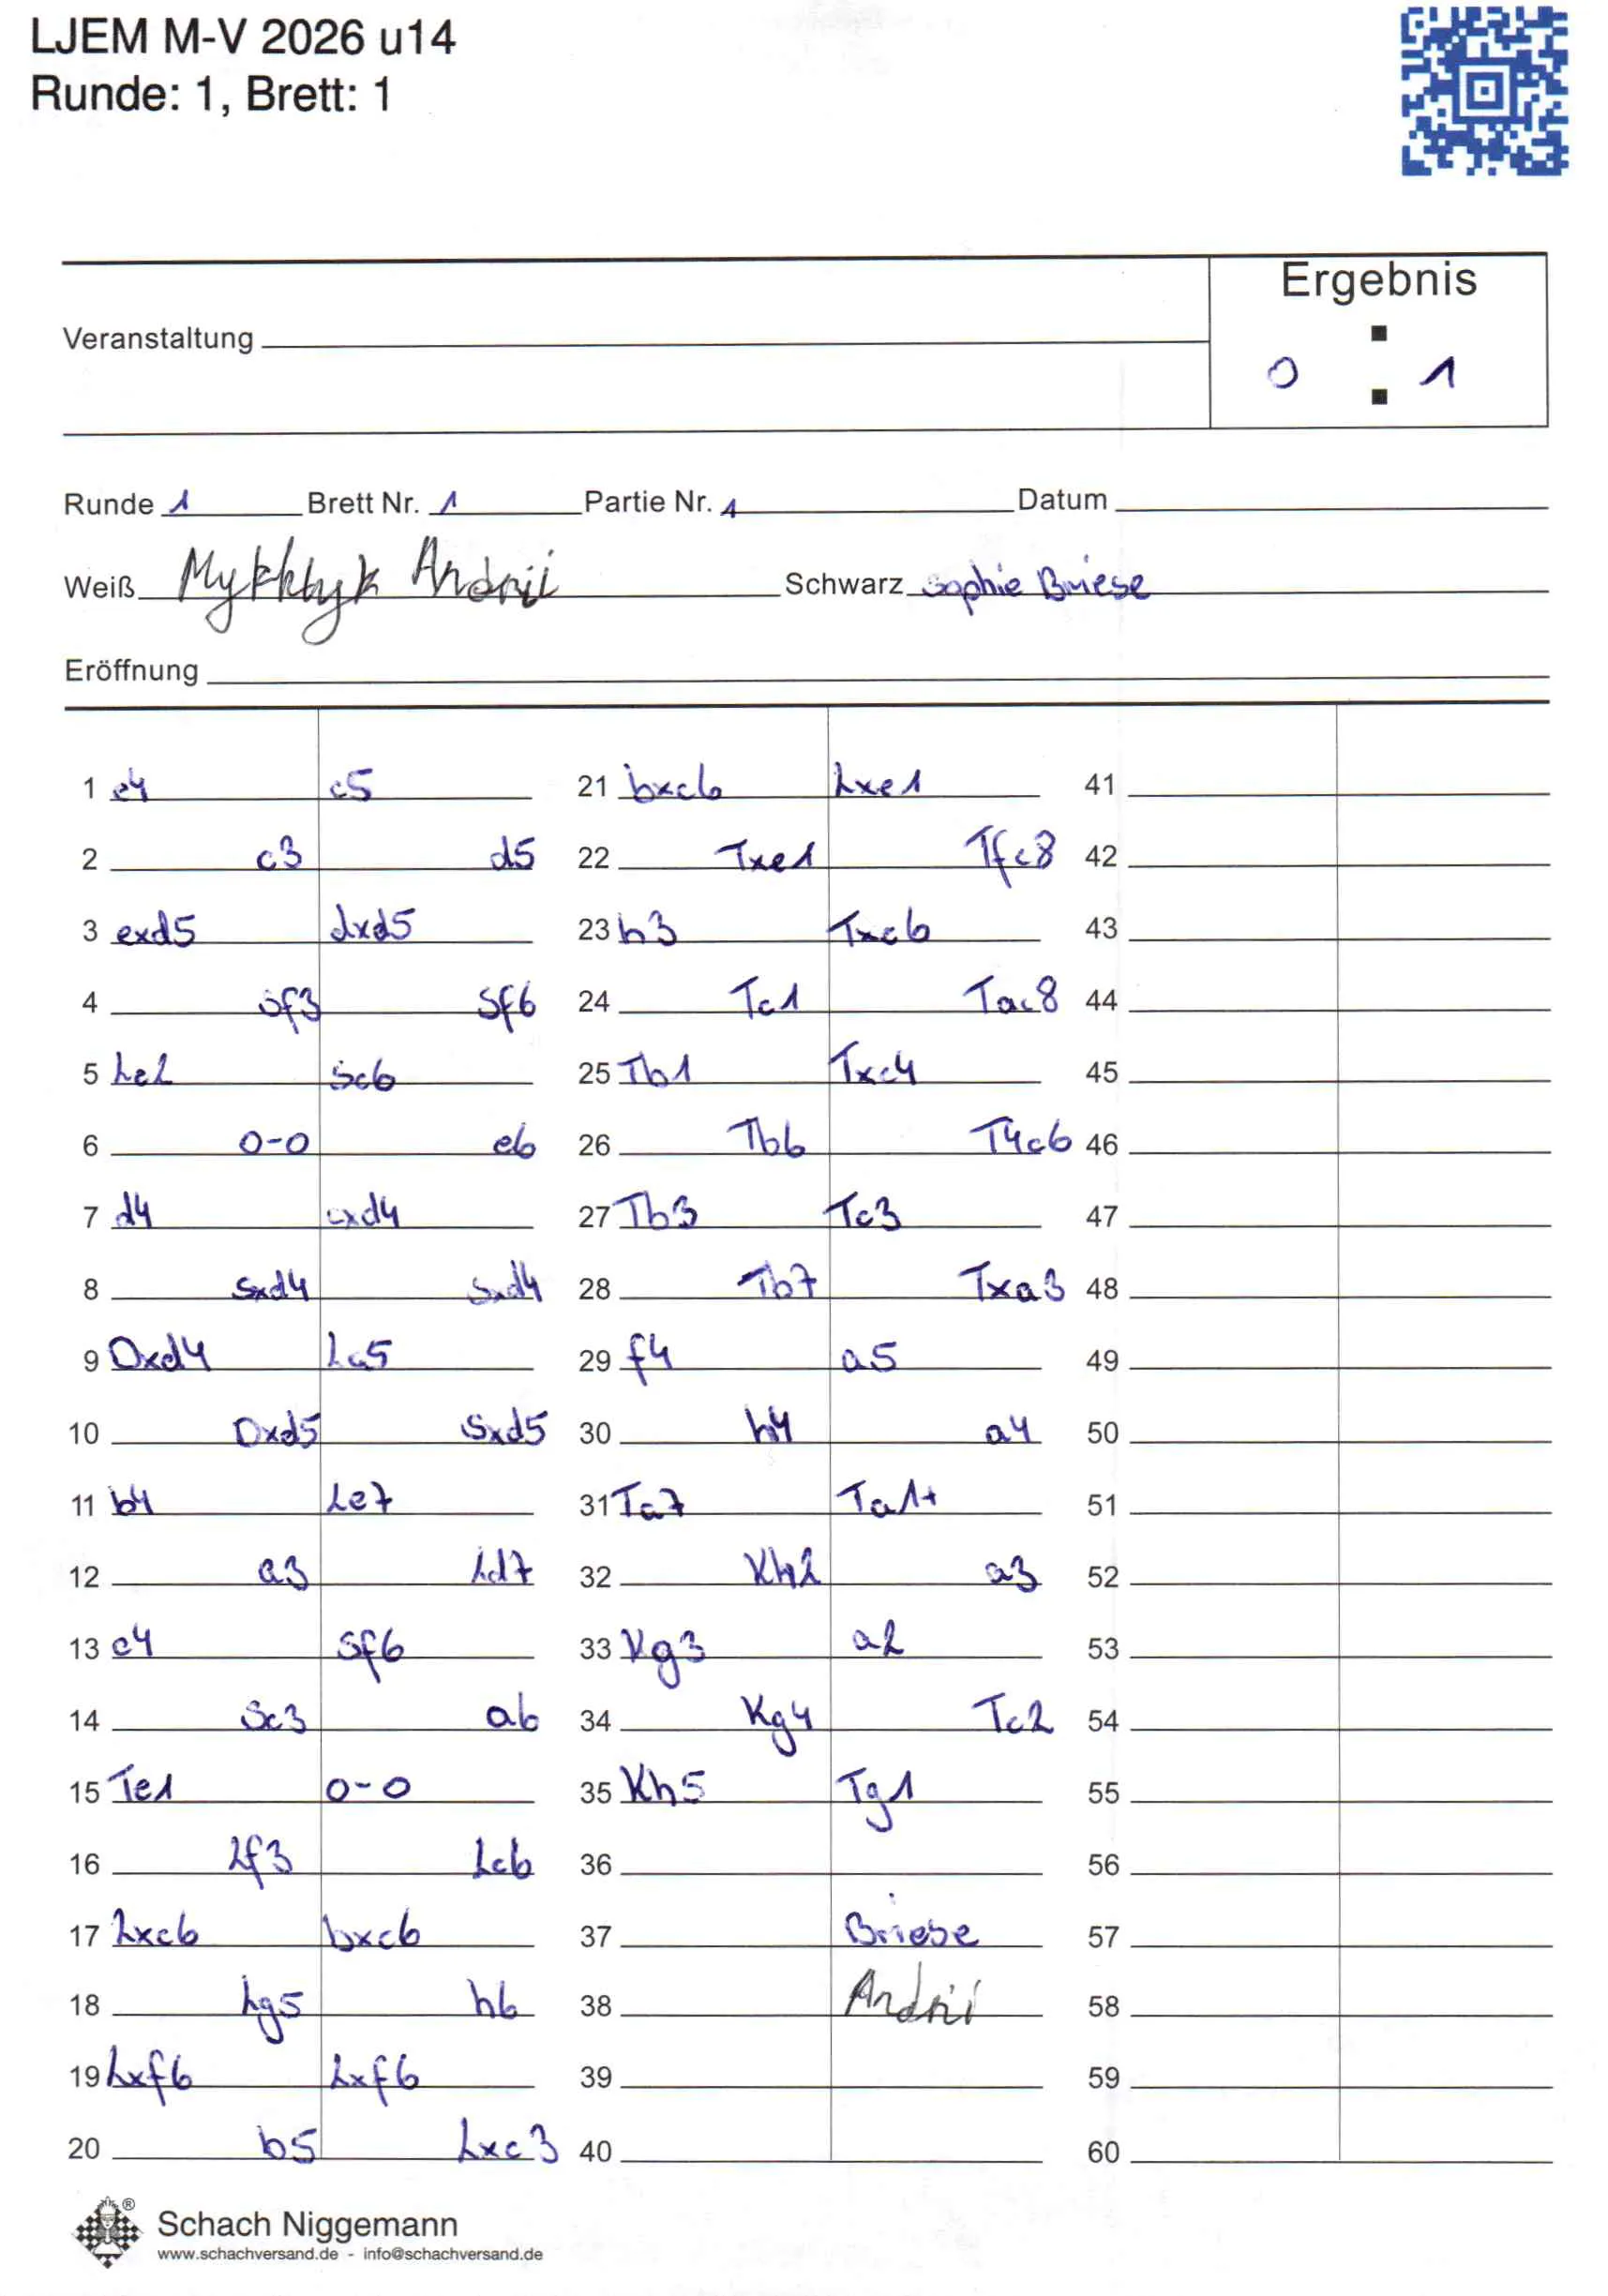 LJEM M-V 2026 u14
Runde: 1, Brett: 1
Ergebnis
Veranstaltung
0 : 1
Runde 1 Brett Nr. 1 Partie Nr. 1 Datum
Weiß Andrii Schwarz Sophie Briese
Eröffnung
1 e4 c5 21 bxc6 Lxe1 41
2 c3 d5 22 Txe1 Tfc8 42
3 exd5 dxd5 23 h3 Txc6 43
4 Sf3 Sf6 24 Tc1 Tac8 44
5 Le2 Sc6 25 Tb1 Txc4 45
6 0-0 e6 26 Tb6 T4c6 46
7 d4 cxd4 27 Tb3 Tc3 47
8 Sxd4 Sxd4 28 Tb7 Txa3 48
9 Dxd4 Lc5 29 f4 a5 49
10 Dxd5 Sxd5 30 h4 a4 50
11 b4 Le7 31 Ta7 Ta1+ 51
12 a3 Ld7 32 Kh2 a3 52
13 c4 Sf6 33 Kg3 a2 53
14 Sc3 a6 34 Kg4 Tc2 54
15 Te1 0-0 35 Kh5 Tg1 55
16 Lf3 Lc6 36 56
17 Lxc6 bxc6 37 Briese 57
18 Lg5 h6 38 Andrii 58
19 Lxf6 Lxf6 39 59
20 b5 Lxc3 40 60
® Schach Niggemann
www.schachversand.de - info@schachversand.de